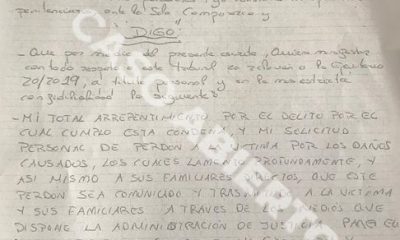 penitenciarios, ante la Sala comparezco y
DIGO
- Que por medio del presente escrito, quiero
con todo respeto este tribunal
20/2019, a título personal y en la más estricta
confidencialidad lo siguiente:
- MI TOTAL ARREPENTIMIENTO POR EL DELITO POR EL
CUAL CUMPLO ESTA CONDENA Y MI SOLICITUD
PERSONAL DE PERDÓN A LA VICTIMA POR LOS DAÑOS
CAUSADOS, LOS CUALES LAMENTO PROFUNDAMENTE, Y
ASI MISMO A SUS FAMILIARES DIRECTOS, QUE ESTE
PERDON SEA COMUNICADO Y TRASMITIDO A LA VICTIMA
Y SUS FAMILIARES A TRAVES DE LOS MEDIOS QUE
DISPONE LA ADMINISTRACION DE JUSTICIA PARA EL
CASO ABIERTO